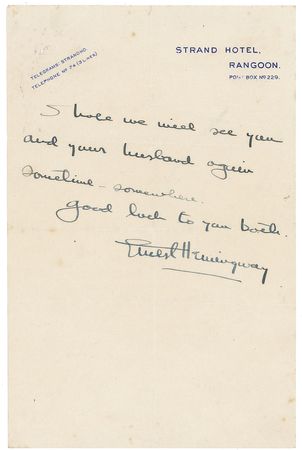 TELEGRAMS: STRANDHO.
TELEPHONE Nº 24 (3 LINES)
STRAND HOTEL,
RANGOON.
POST BOX Nº 229.
I hope we will see you
and your husband again
sometime - somewhere.
Good luck to you both.
Ernest Hemingway